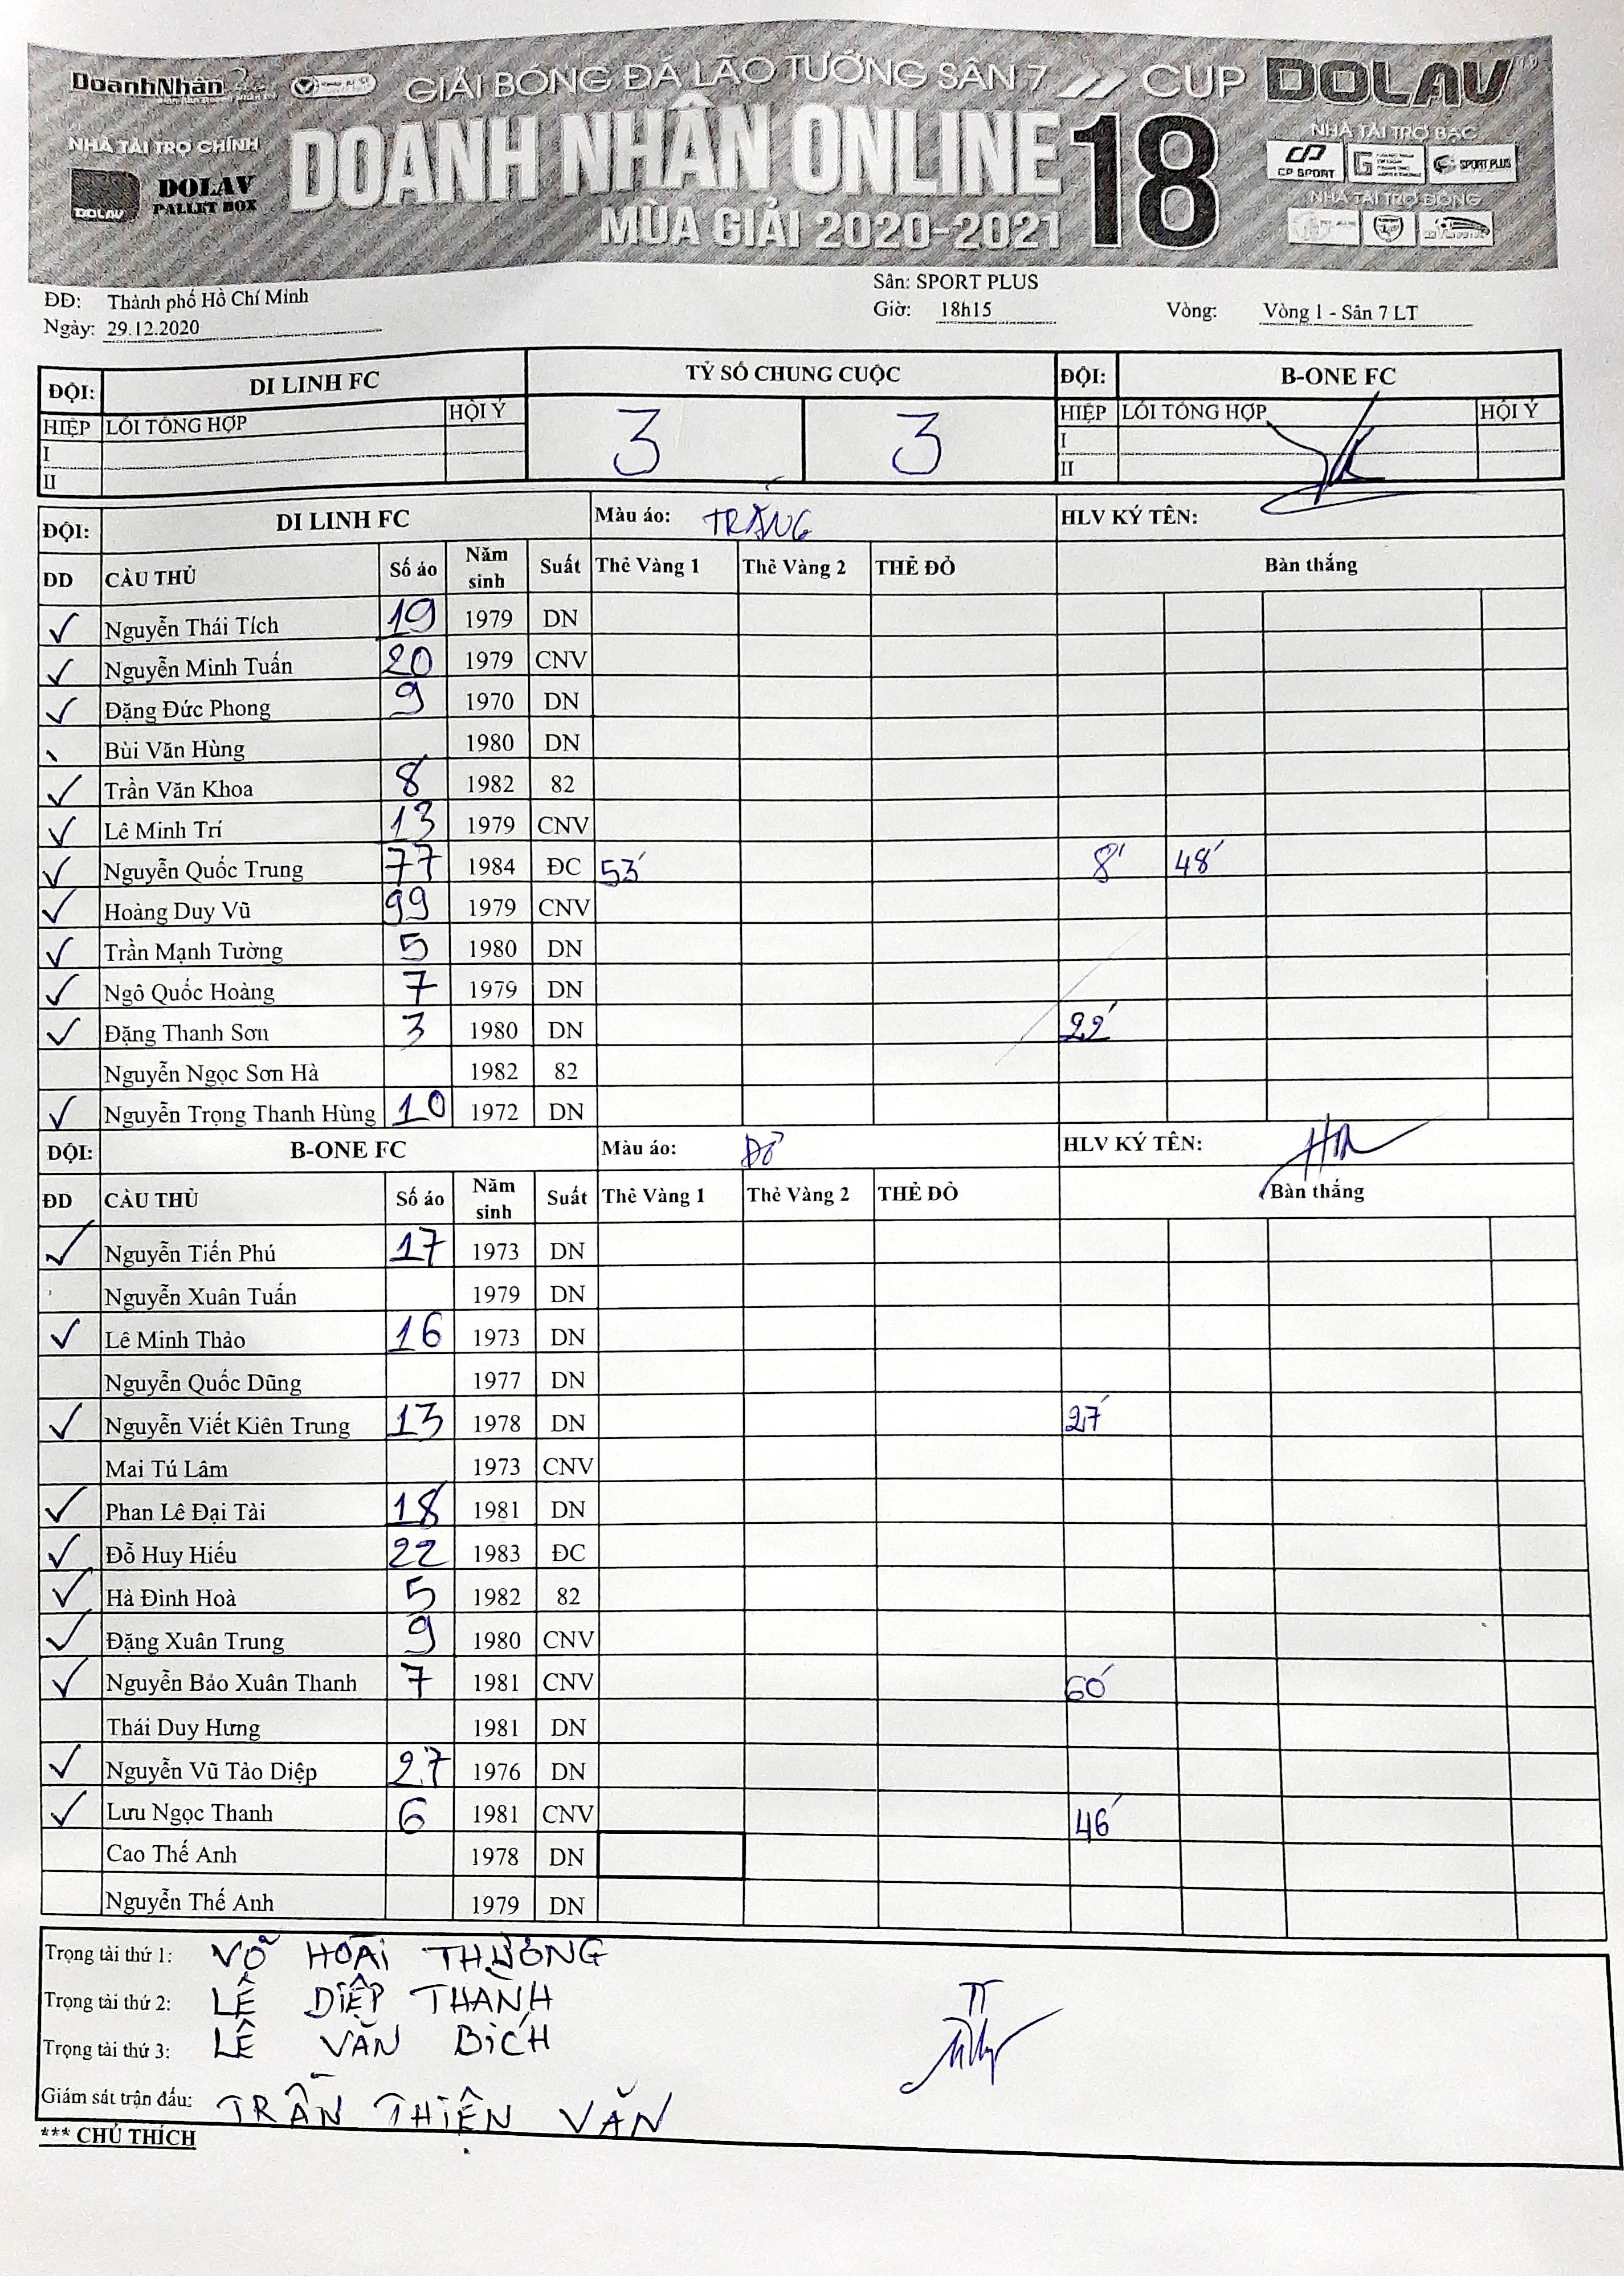 DoanhNhân
GIẢI BÓNG ĐÁ LÃO TƯỚNG SÂN 7 CUP DOLAV
NHÀ TÀI TRỢ CHÍNH
DOLAV PALLET BOX
DOLAV
DOANH NHÂN ONLINE 18
MÙA GIẢI 2020-2021
NHÀ TÀI TRỢ BẠC
CP SPORT SPORT PLUS
NHÀ TÀI TRỢ ĐỒNG
ĐD: Thành phố Hồ Chí Minh Sân: SPORT PLUS
Ngày: 29.12.2020 Giờ: 18h15 Vòng: Vòng 1 - Sân 7 LT
ĐỘI: DI LINH FC TỶ SỐ CHUNG CUỘC ĐỘI: B-ONE FC
HIỆP LỖI TỔNG HỢP HỘI Ý 3 3 HIỆP LỖI TỔNG HỢP HỘI Ý
I I
II II
ĐỘI: DI LINH FC Màu áo: TRẮNG HLV KÝ TÊN:
ĐD CẦU THỦ Số áo Năm sinh Suất Thẻ Vàng 1 Thẻ Vàng 2 THẺ ĐỎ Bàn thắng
✓ Nguyễn Thái Tích 19 1979 DN
✓ Nguyễn Minh Tuấn 20 1979 CNV
✓ Đặng Đức Phong 9 1970 DN
Bùi Văn Hùng 1980 DN
✓ Trần Văn Khoa 8 1982 82
✓ Lê Minh Trí 13 1979 CNV
✓ Nguyễn Quốc Trung 77 1984 ĐC 53' 8' 48'
✓ Hoàng Duy Vũ 99 1979 CNV
✓ Trần Mạnh Tường 5 1980 DN
✓ Ngô Quốc Hoàng 7 1979 DN
✓ Đặng Thanh Sơn 3 1980 DN 22'
Nguyễn Ngọc Sơn Hà 1982 82
✓ Nguyễn Trọng Thanh Hùng 10 1972 DN
ĐỘI: B-ONE FC Màu áo: ĐỎ HLV KÝ TÊN:
ĐD CẦU THỦ Số áo Năm sinh Suất Thẻ Vàng 1 Thẻ Vàng 2 THẺ ĐỎ Bàn thắng
✓ Nguyễn Tiến Phú 17 1973 DN
Nguyễn Xuân Tuấn 1979 DN
✓ Lê Minh Thảo 16 1973 DN
Nguyễn Quốc Dũng 1977 DN
✓ Nguyễn Viết Kiên Trung 13 1978 DN 27'
Mai Tú Lâm 1973 CNV
✓ Phan Lê Đại Tài 18 1981 DN
✓ Đỗ Huy Hiếu 22 1983 ĐC
✓ Hà Đình Hoà 5 1982 82
✓ Đặng Xuân Trung 9 1980 CNV
✓ Nguyễn Bảo Xuân Thanh 7 1981 CNV 60'
Thái Duy Hưng 1981 DN
✓ Nguyễn Vũ Tảo Diệp 27 1976 DN
✓ Lưu Ngọc Thanh 6 1981 CNV 46'
Cao Thế Anh 1978 DN
Nguyễn Thế Anh 1979 DN
Trọng tài thứ 1: VÕ HOÀI THƯƠNG
Trọng tài thứ 2: LÊ DIỆP THÀNH
Trọng tài thứ 3: LÊ VĂN BÍCH
Giám sát trận đấu: TRẦN THIỆN VĂN
*** CHÚ THÍCH